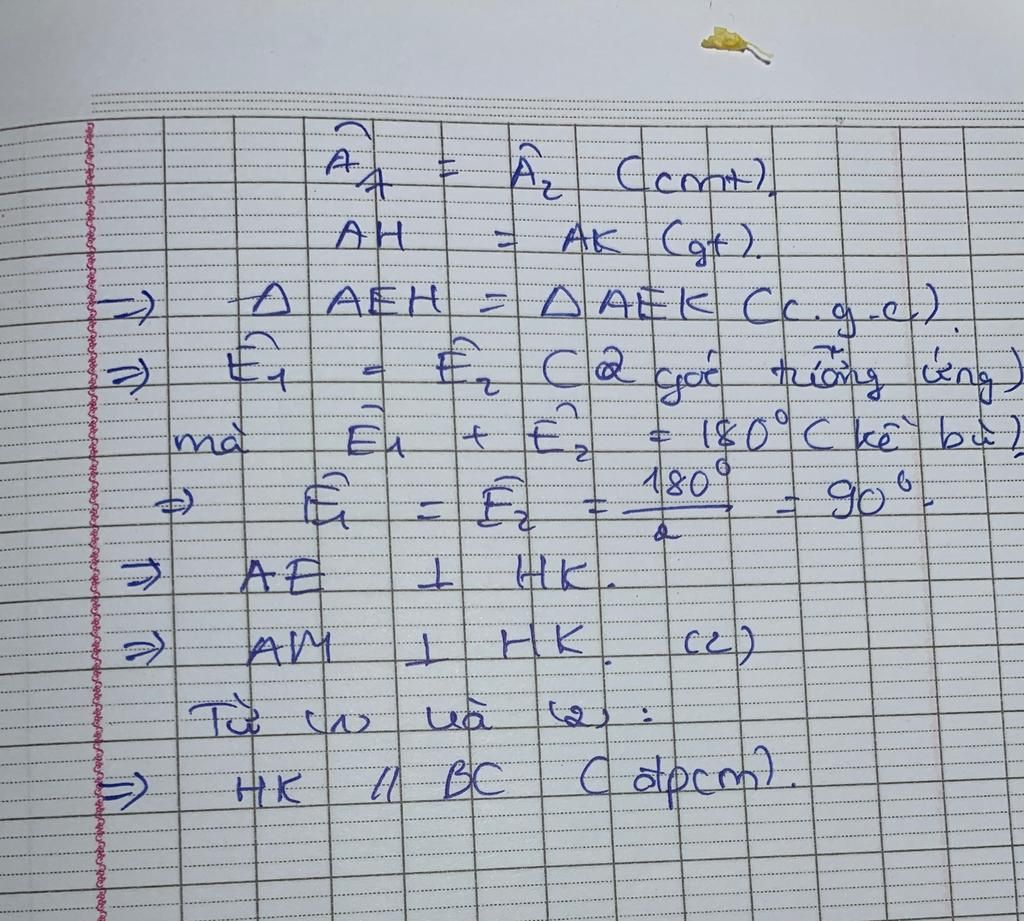 Â₁ = Â₂ (cmt)
AH = AK (gt).
=> Δ AEH = Δ AEK (c.g.c).
=> Ê₁ = Ê₂ (2 góc tương ứng)
mà Ê₁ + Ê₂ = 180° (kề bù)
=> Ê₁ = Ê₂ = 180°/2 = 90°.
=> AE ⊥ HK.
=> AM ⊥ HK. (2)
Từ (1) và (2):
=> HK // BC (đpcm).